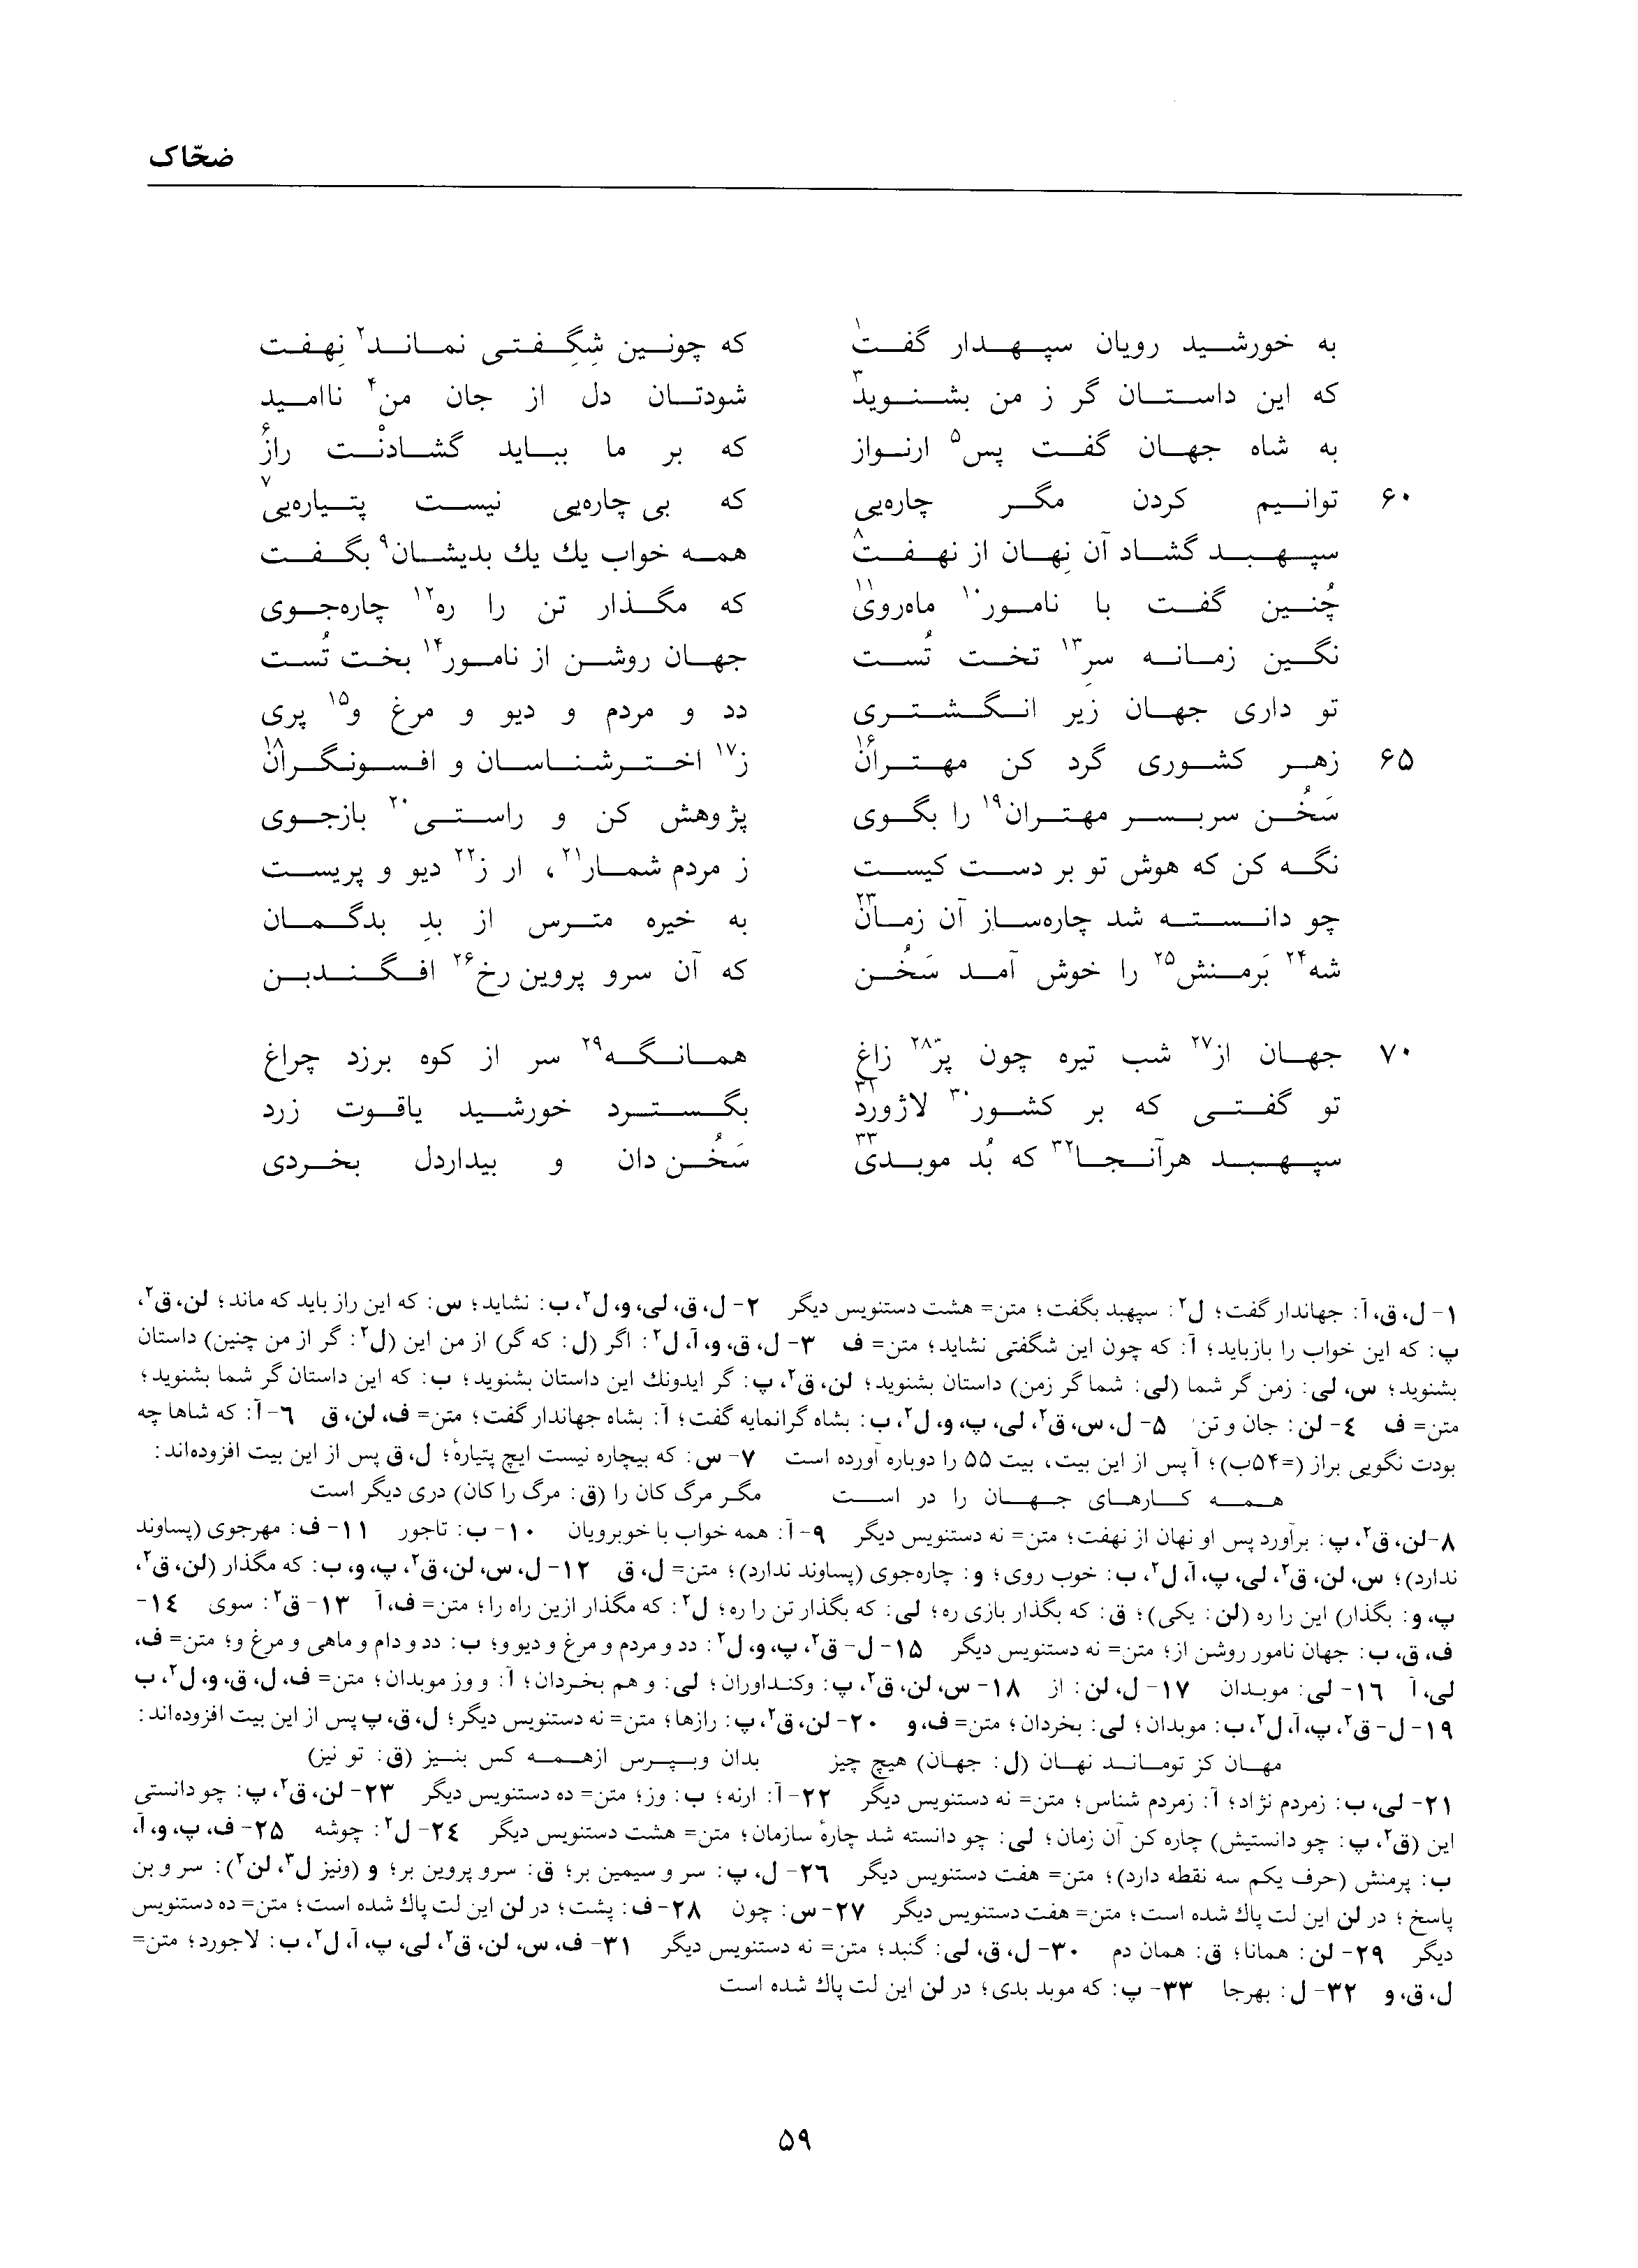 ضحّاک
به خورشید رویان سپهدار گفت۱ که چونین شِگِفتی نماند۲ نِهفت
که این داستان گر ز من بشنوید۳ شودتان دل از جان من۴ ناامید
به شاه جهان گفت پس۵ ارنواز که بر ما بباید گشادنْت راز۶
۶۰ توانیم کردن مگر چاره‌یی که بی چاره‌یی نیست پتیاره‌یی۷
سپهبد گشاد آن نِهان از نهفت۸ همه خواب یك یك بدیشان۹ بگفت
چُنین گفت با نامور۱۰ ماه‌روی۱۱ که مگذار تن را ره۱۲ چاره‌جوی
نگین زمانه سرِ۱۳ تخت تُست جهان روشن از نامور۱۴ بخت تُست
تو داری جهان زیر انگشتری دد و مردم و دیو و مرغ و۱۵ پری
۶۵ زهر کشوری گرد کن مهتران۱۶ ز۱۷ اخترشناسان و افسونگران۱۸
سَخُن سربسر مهتران۱۹ را بگوی پژوهش کن و راستی۲۰ بازجوی
نگه کن که هوش تو بر دست کیست ز مردم شمار۲۱، ار ز۲۲ دیو و پریست
چو دانسته شد چاره‌ساز آن زمان۲۳ به خیره مترس از بدِ بدگمان
شه۲۴ بَرمنش۲۵ را خوش آمد سَخُن که آن سرو پروین رخ۲۶ افگندبن
۷۰ جهان از۲۷ شب تیره چون پرّ۲۸ زاغ همانگه۲۹ سر از کوه برزد چراغ
تو گفتی که بر کشور۳۰ لاژورد۳۱ بگسترد خورشید یاقوت زرد
سپهبد هرآنجا۳۲ که بُد موبدی۳۳ سَخُن دان و بیداردل بخردی
۱- ل، ق، آ: جهاندار گفت؛ ل۲: سپهبد بگفت؛ متن= هشت دستنویس دیگر ۲- ل، ق، لی، و، ل۲، ب: نشاید؛ س: که این راز باید که ماند؛ لن، ق۲،
پ: که این خواب را بازباید؛ آ: که چون این شگفتی نشاید؛ متن= ف ۳- ل، ق، و، آ، ل۲: اگر (ل: که گر) از من این (ل۲: گر از من چنین) داستان
بشنوید؛ س، لی: زمن گر شما (لی: شما گر زمن) داستان بشنوید؛ لن، ق۲، پ: گر ایدونك این داستان بشنوید؛ ب: که این داستان گر شما بشنوید؛
متن= ف ٤- لن: جان و تن ۵- ل، س، ق۲، لی، پ، و، ل۲، ب: بشاه گرانمایه گفت؛ آ: بشاه جهاندار گفت؛ متن= ف، لن، ق ٦- آ: که شاها چه
بودت نگویی براز (=۵۴ب)؛ آ پس از این بیت، بیت ۵۵ را دوباره آورده است ۷- س: که بیچاره نیست ایچ پتیارهٔ؛ ل، ق پس از این بیت افزوده‌اند:
همه کارهای جهان را در است مگر مرگ کان را (ق: مرگ را کان) دری دیگر است
۸- لن، ق۲، پ: برآورد پس او نهان از نهفت؛ متن= نه دستنویس دیگر ۹- آ: همه خواب با خوبرویان ۱۰- ب: تاجور ۱۱- ف: مهرجوی (پساوند
ندارد)؛ س، لن، ق۲، لی، پ، آ، ل۲، ب: خوب روی؛ و: چاره‌جوی (پساوند ندارد)؛ متن= ل، ق ۱۲- ل، س، لن، ق۲، پ، و، ب: که مگذار (لن، ق۲،
پ، و: بگذار) این را ره (لن: یکی)؛ ق: که بگذار بازی ره؛ لی: که بگذار تن را ره؛ ل۲: که مگذار ازین راه را؛ متن= ف، آ ۱۳- ق۲: سوی ۱٤-
ف، ق، ب: جهان نامور روشن از؛ متن= نه دستنویس دیگر ۱۵- ل- ق۲، پ، و، ل۲: دد و مردم و مرغ و دیو و؛ ب: دد و دام و ماهی و مرغ و؛ متن= ف،
لی، آ ۱٦- لی: موبدان ۱۷- ل، لن: از ۱۸- س، لن، ق۲، پ: وکنداوران؛ لی: و هم بخردان؛ آ: و وز موبدان؛ متن= ف، ل، ق، و، ل۲، ب
۱۹- ل- ق۲، پ، آ، ل۲، ب: موبدان؛ لی: بخردان؛ متن= ف، و ۲۰- لن، ق۲، پ: رازها؛ متن= نه دستنویس دیگر؛ ل، ق، پ پس از این بیت افزوده‌اند:
مهان کز تو ماند نهان (ل: جهان) هیچ چیز بدان وبپرس ازهمه کس بنیز (ق: تو نیز)
۲۱- لی، ب: زمردم نژاد؛ آ: زمردم شناس؛ متن= نه دستنویس دیگر ۲۲- آ: ارنه؛ ب: وز؛ متن= ده دستنویس دیگر ۲۳- لن، ق۲، پ: چو دانستی
این (ق۲، پ: چو دانستیش) چاره کن آن زمان؛ لی: چو دانسته شد چارهٔ سازمان؛ متن= هشت دستنویس دیگر ۲٤- ل۲: چوشه ۲۵- ف، پ، و، آ،
ب: پرمنش (حرف یکم سه نقطه دارد)؛ متن= هفت دستنویس دیگر ۲٦- ل، پ: سر و سیمین بر؛ ق: سرو پروین بر؛ و (ونیز ل۳، لن۲): سر و بن
پاسخ؛ در لن این لت پاك شده است؛ متن= هفت دستنویس دیگر ۲۷- س: چون ۲۸- ف: پشت؛ در لن این لت پاك شده است؛ متن= ده دستنویس
دیگر ۲۹- لن: همانا؛ ق: همان دم ۳۰- ل، ق، لی: گنبد؛ متن= نه دستنویس دیگر ۳۱- ف، س، لن، ق۲، لی، پ، آ، ل۲، ب: لاجورد؛ متن=
ل، ق، و ۳۲- ل: بهرجا ۳۳- پ: که موبد بدی؛ در لن این لت پاك شده است
۵۹